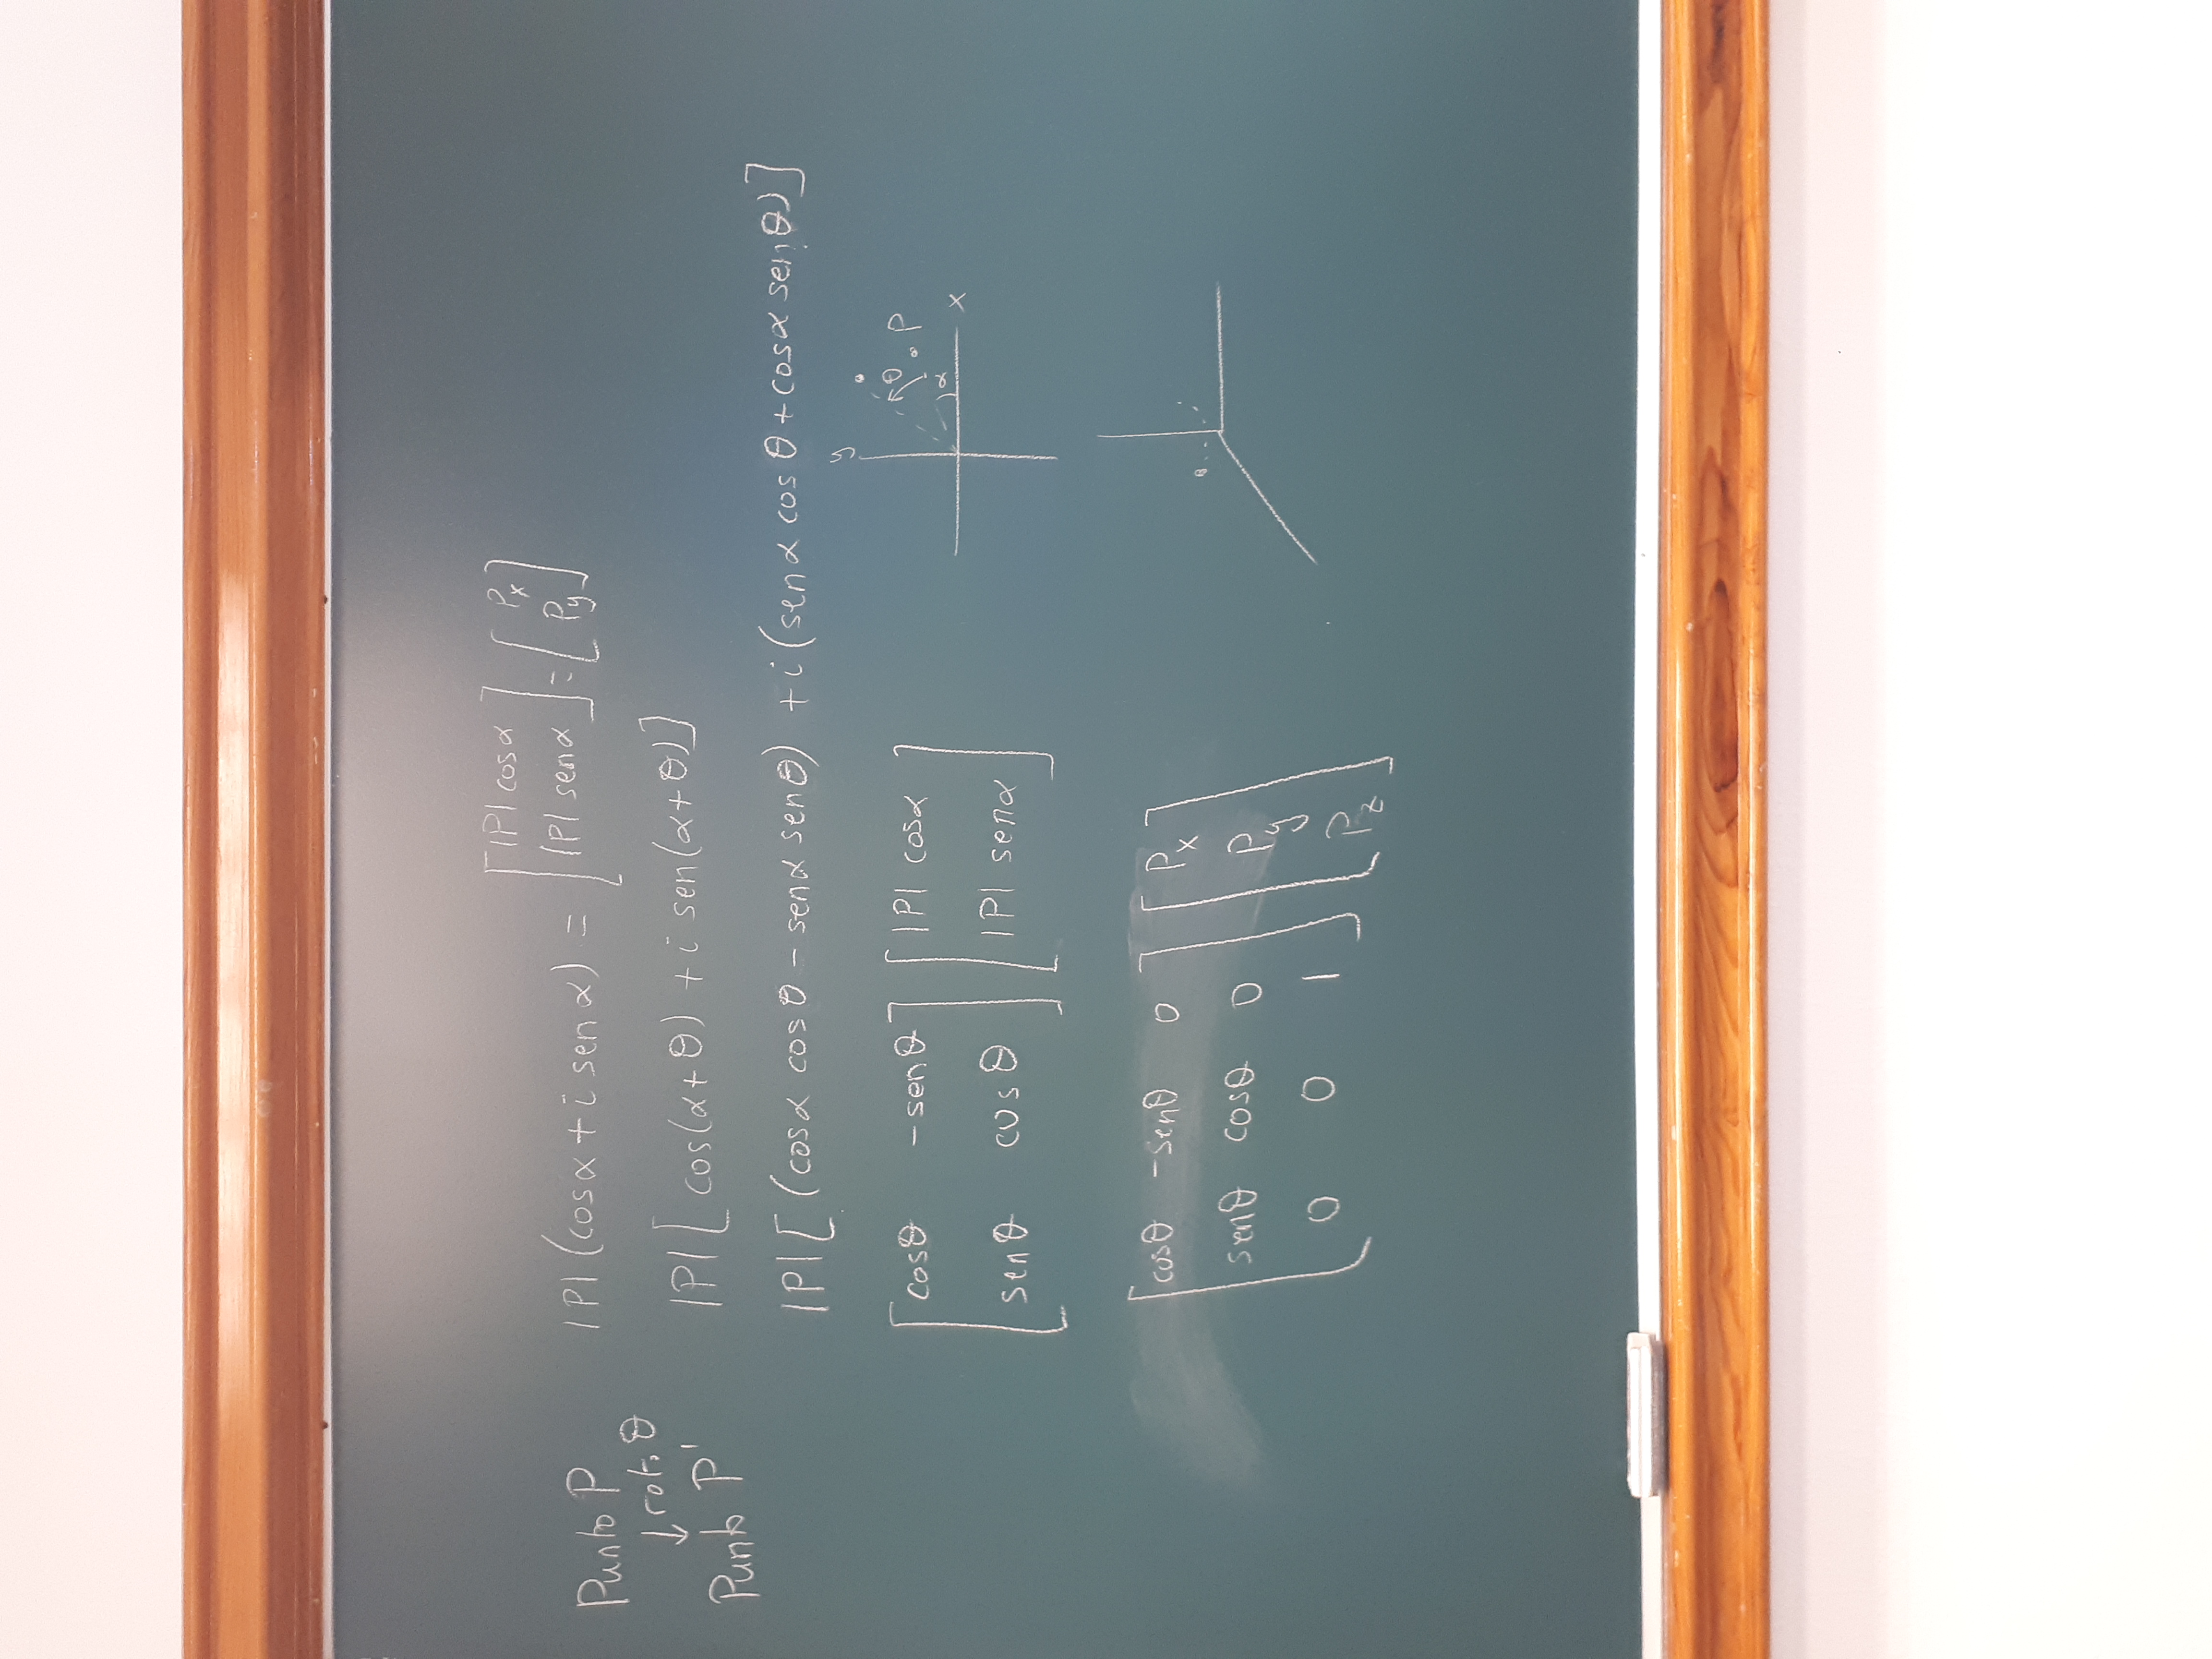 Punto P
↓ rot. θ
Punto P'
|P| (cosα + i sen α) = [ |P| cosα ] = [ Px ]
[ |P| senα ] [ Py ]
|P| [ cos(α+θ) + i sen(α+θ) ]
|P| [ (cosα cosθ - senα senθ) + i (senα cosθ + cosα senθ) ]
[ cosθ -senθ ] [ |P| cosα ]
[ senθ cosθ ] [ |P| senα ]
y
θ
P
α
x
[ cosθ -senθ 0 ] [ Px ]
[ senθ cosθ 0 ] [ Py ]
[ 0 0 1 ] [ Pz ]